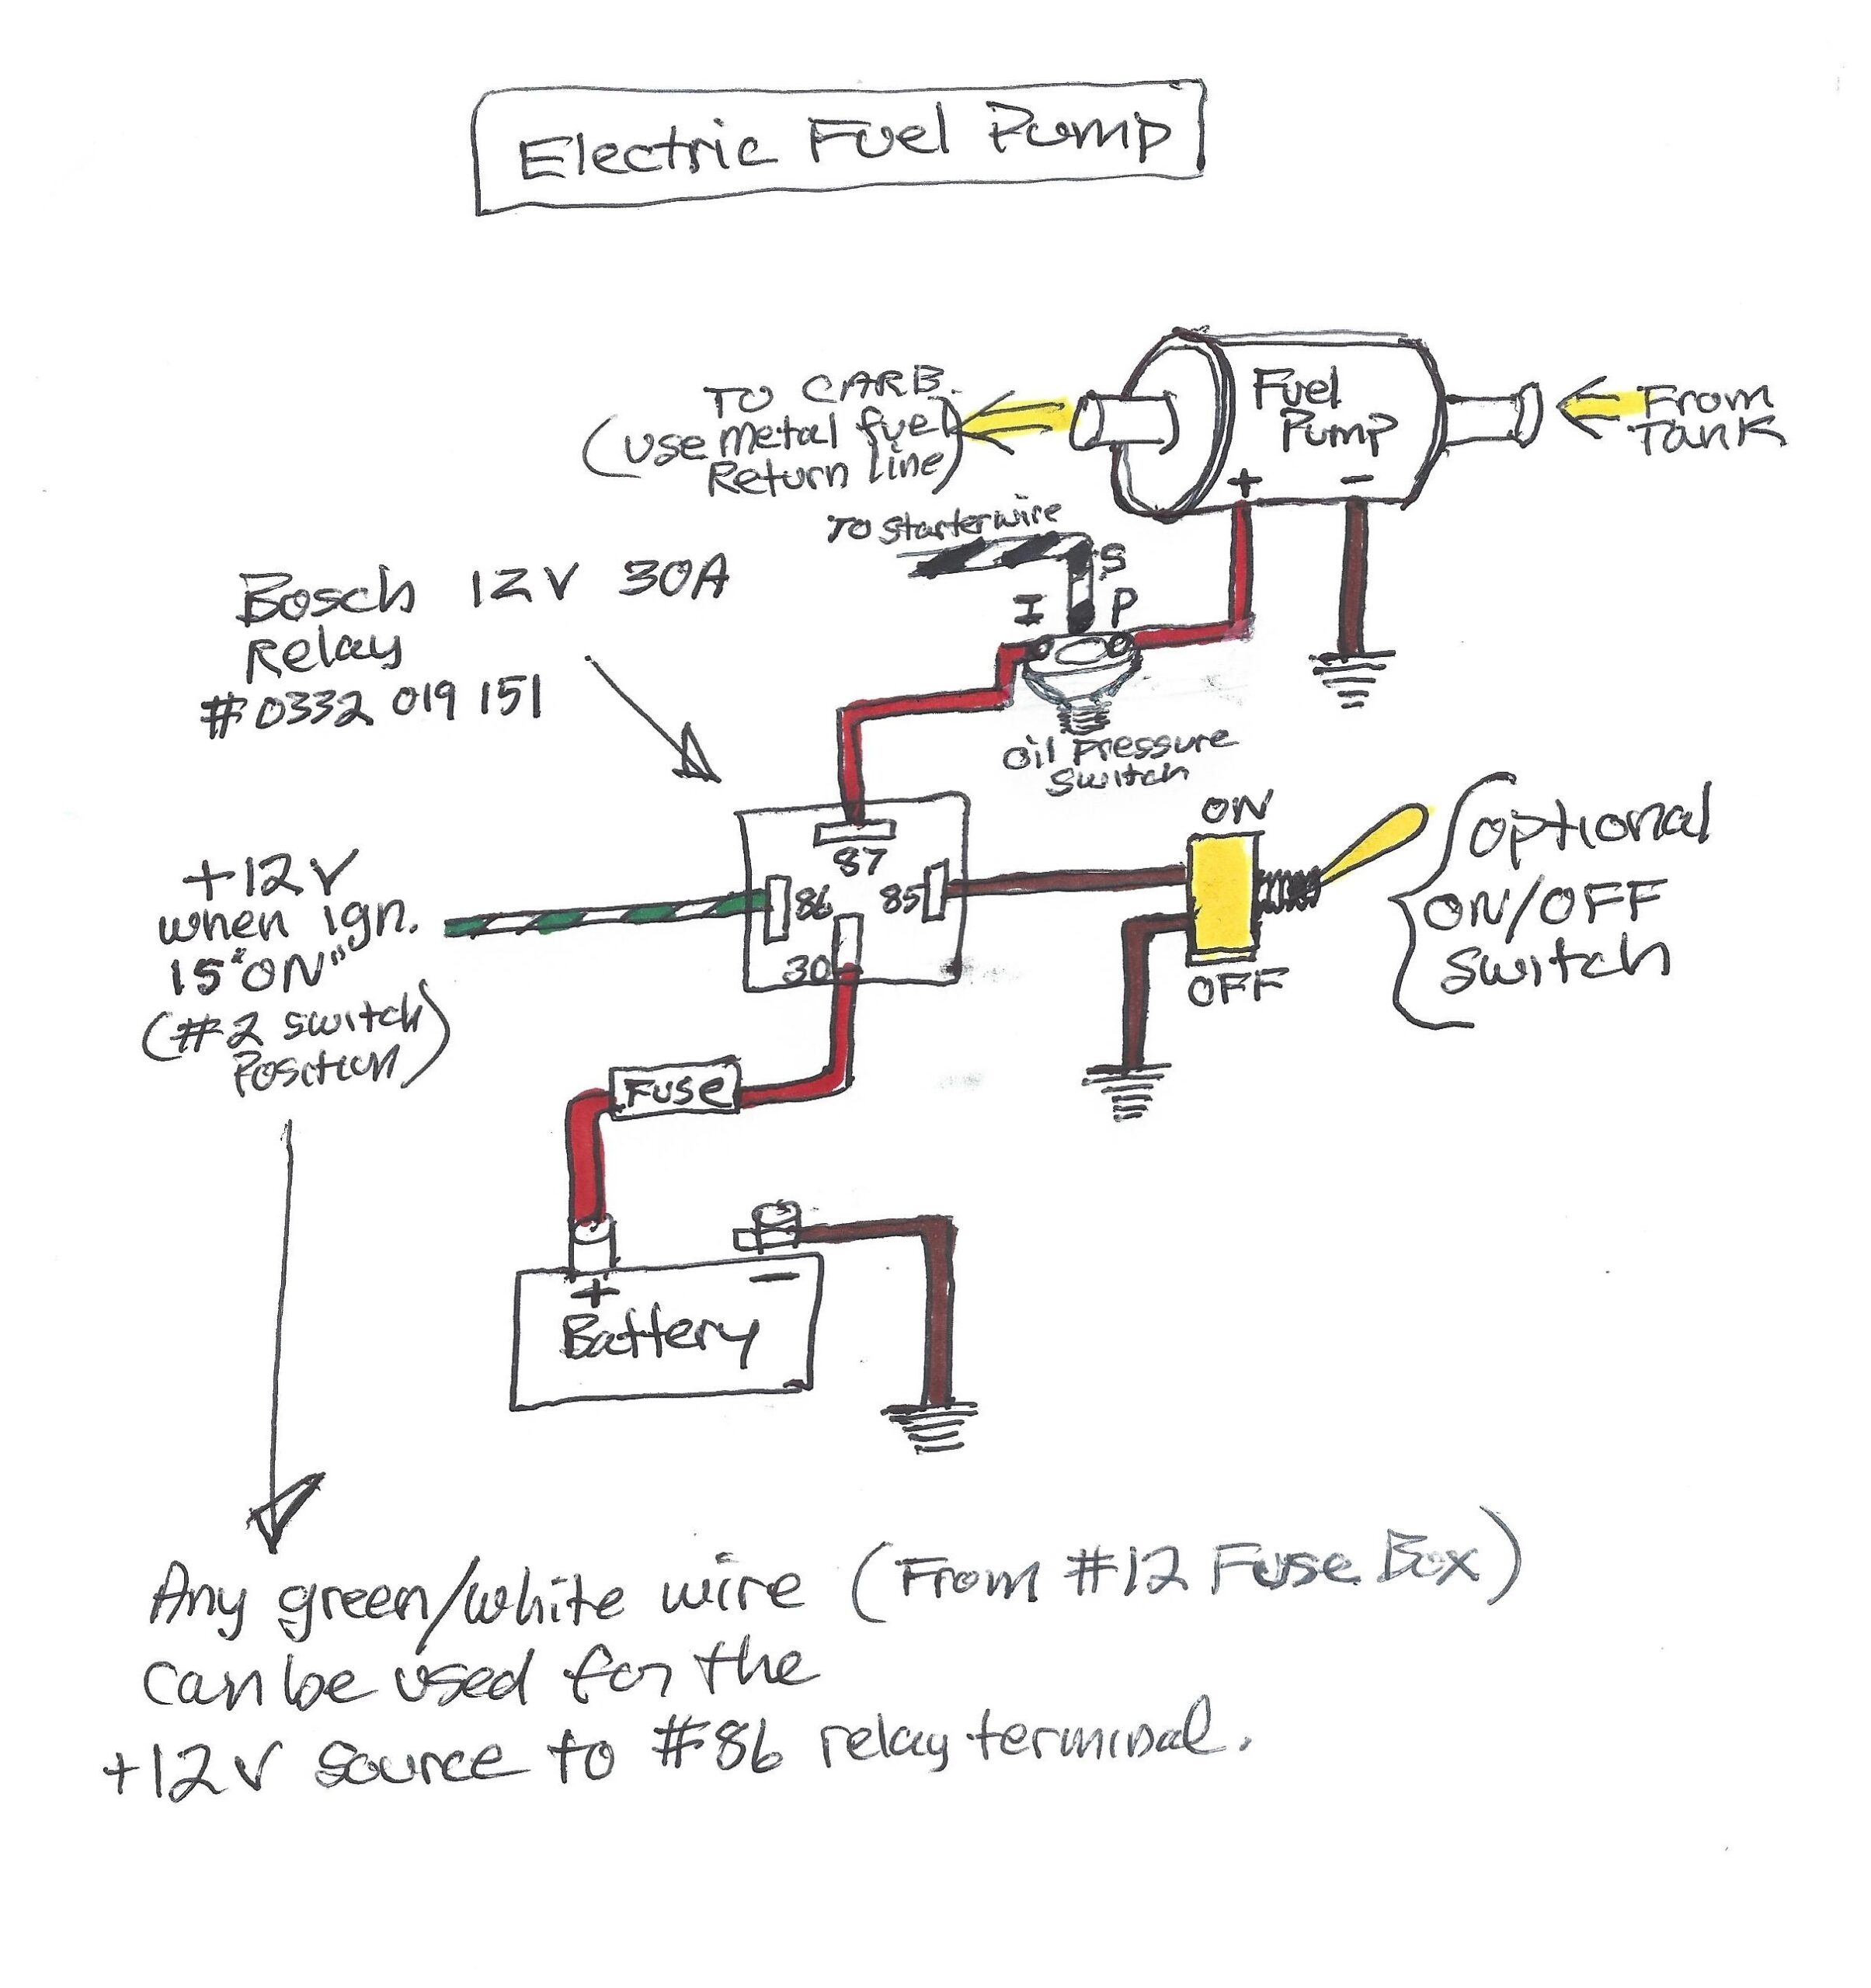 Electric Fuel Pump
TO CARB.
(use metal fuel
Return line)
Fuel
Pump
+
−
From
Tank
To starter wire
S
I
P
Oil Pressure
Switch
Bosch 12V 30A
Relay
#0332 019 151
87
86
85
30
+12V
when ign.
is "ON"
(#2 switch
Position)
ON
OFF
optional
ON/OFF
Switch
Fuse
+
−
Battery
Any green/white wire (From #12 Fuse Box)
can be used for the
+12V source to #86 relay terminal.